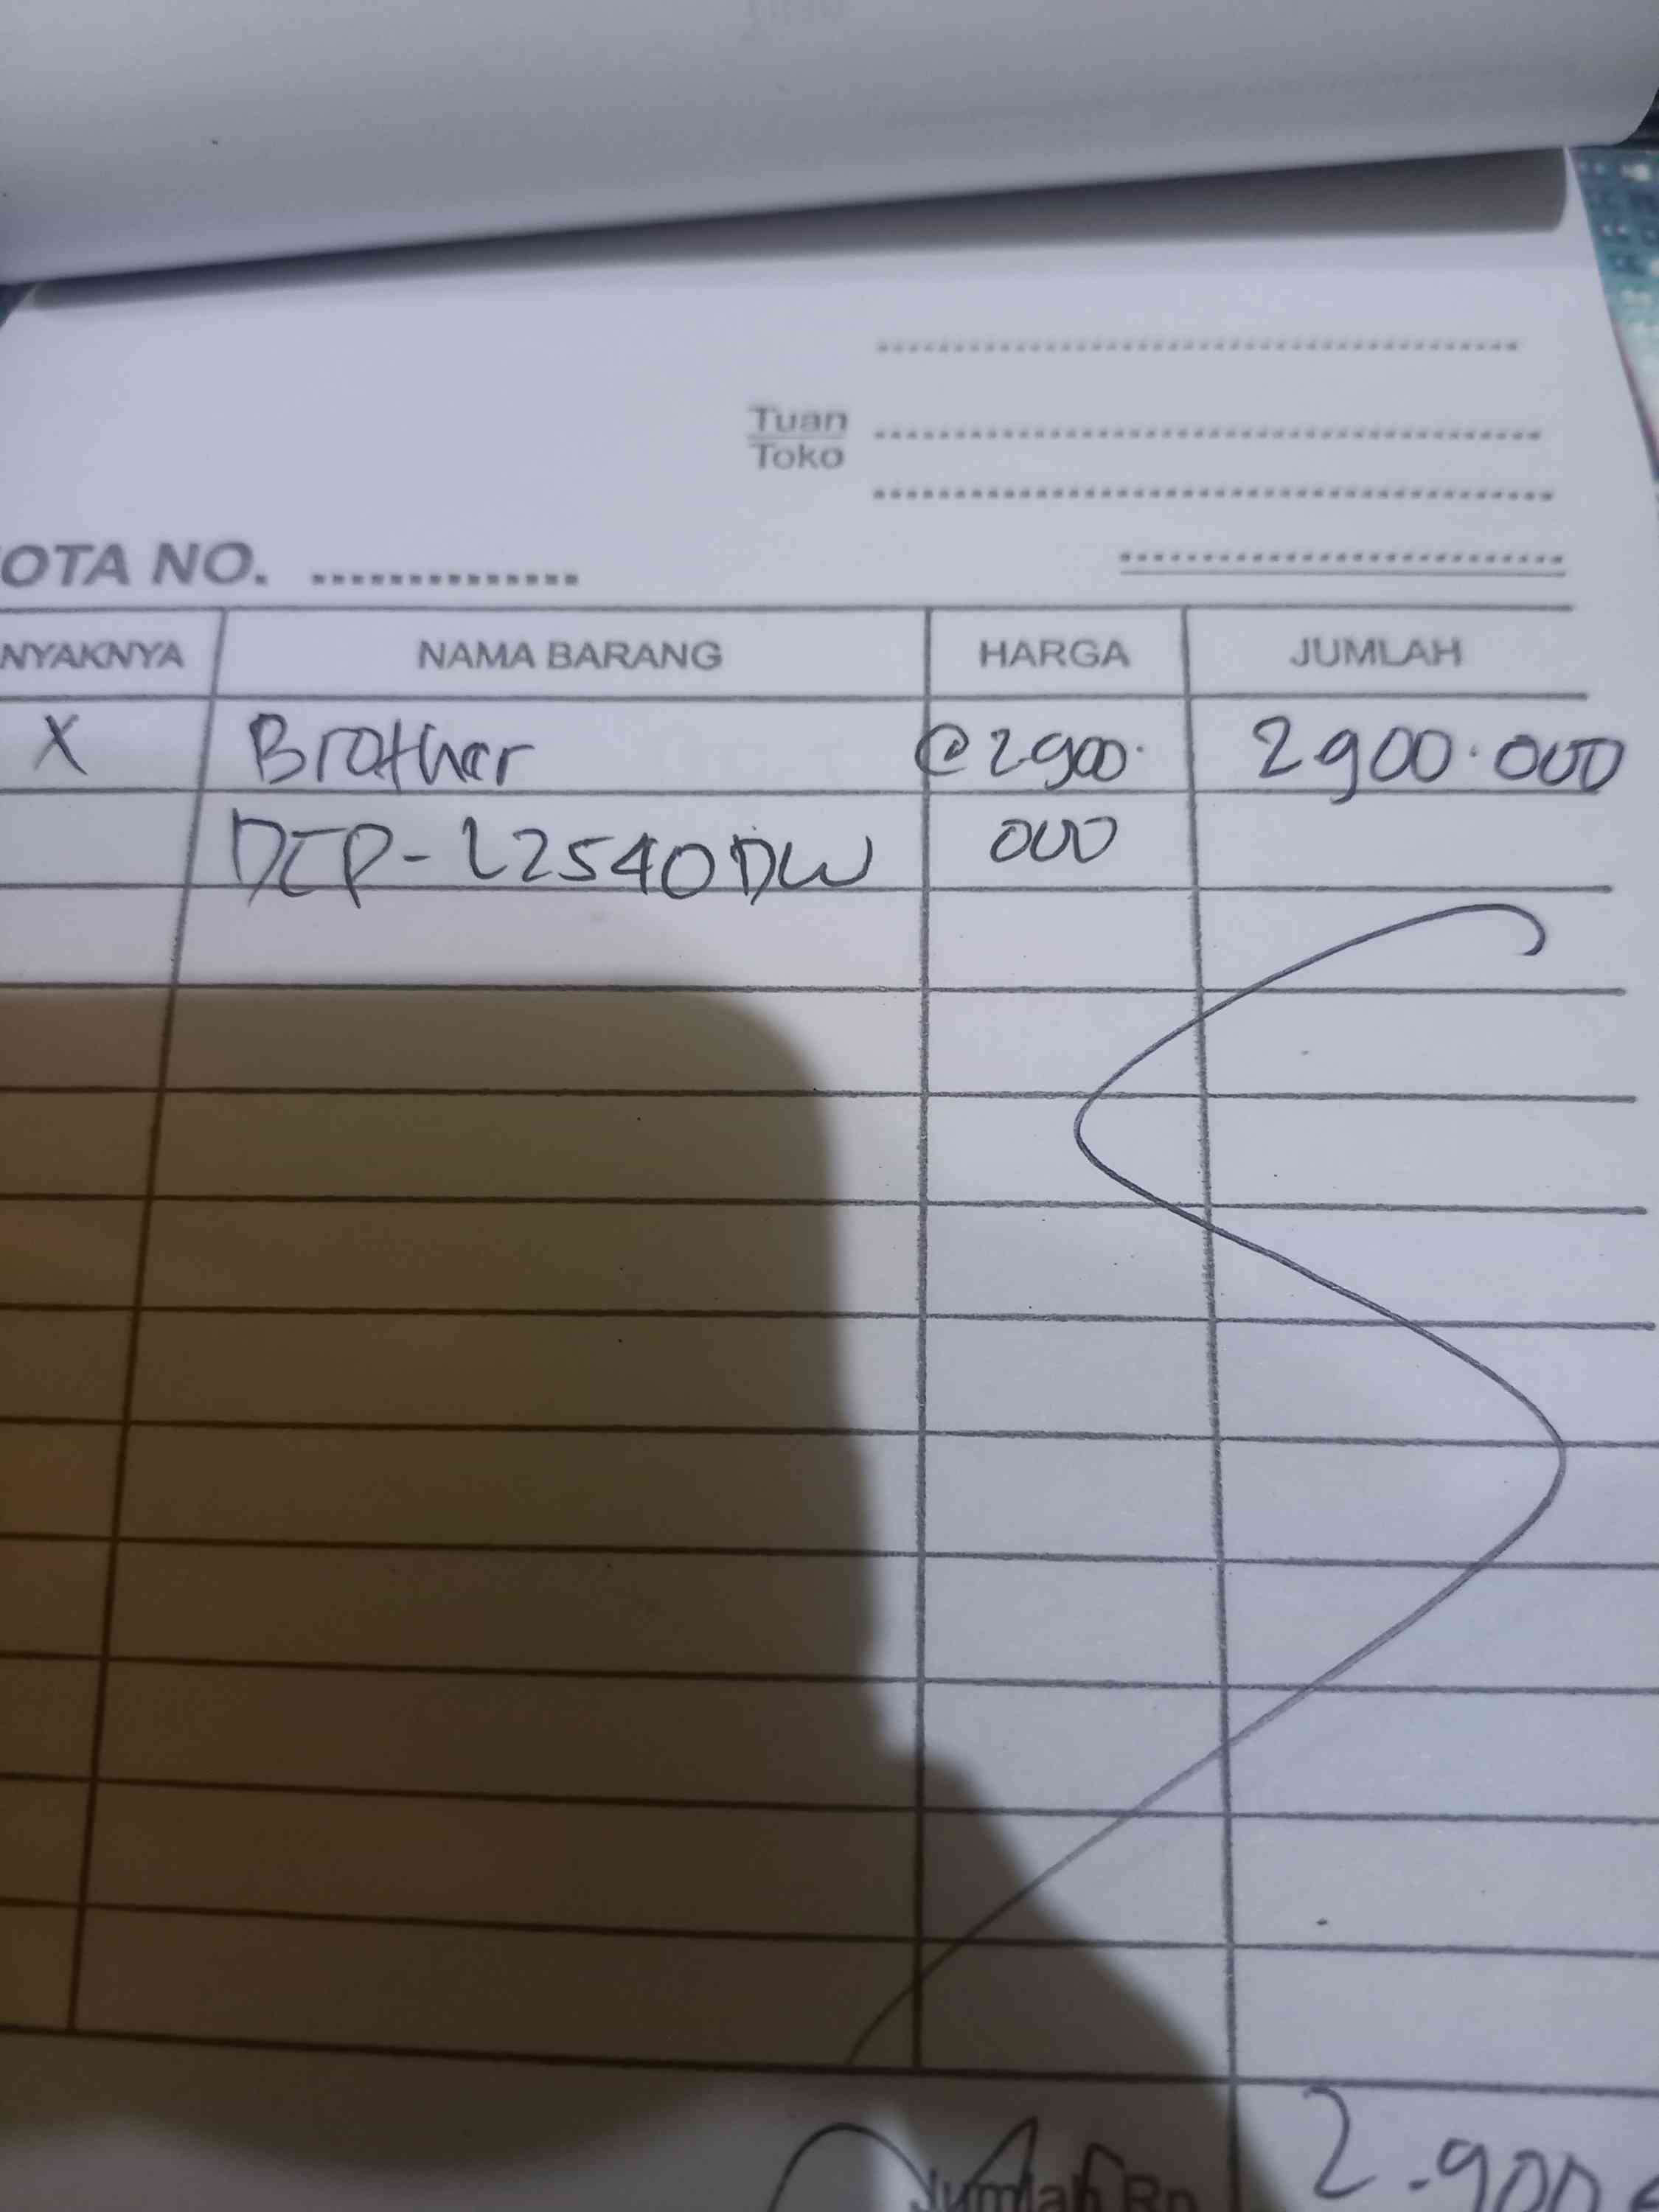 Tuan
Toko
OTA NO. ..............
NYAKNYA NAMA BARANG HARGA JUMLAH
X Brother @2.900. 2.900.000
DCP-L2540DW 000
Jumlah Rp. 2.900